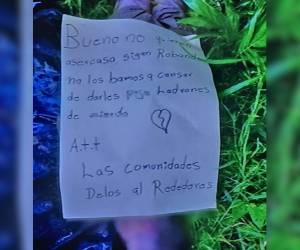 Bueno no quieren
aser casa sigen Robando
no los bamos a cansar
de darles piso Ladrones
de mierda
A.t.t
Las comunidades
Delos al Rededores